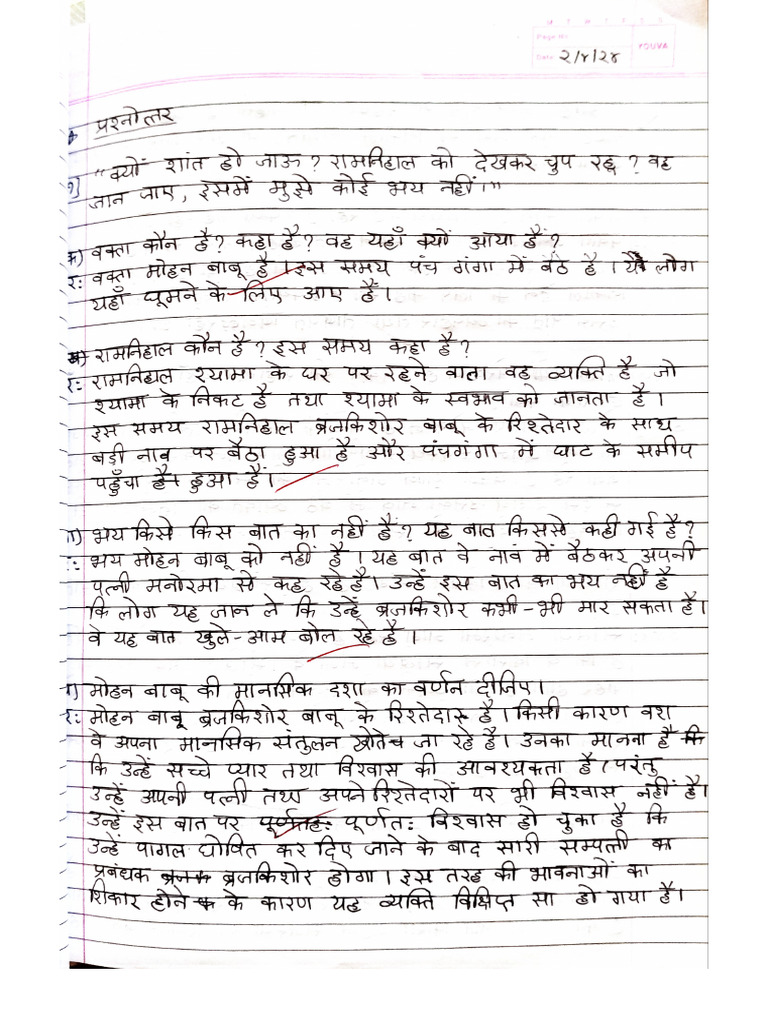 Page No.
Date २/४/२४
YOUVA
प्रश्नोत्तर
१) "क्यों शांत हो जाऊ? रामनिहाल को देखकर चुप रहू? वह
जान जाए, इसमें मुझे कोई भय नहीं।"
क) वक्ता कौन है? कहा है? वह यहाँ क्यों आया है?
उ: वक्ता मोहन बाबू है। इस समय पंच गंगा में बैठे है। ये लोग
यहाँ घूमने के लिए आए हैं।
ख) रामनिहाल कौन है? इस समय कहा है?
उ: रामनिहाल श्यामा के घर पर रहने वाला वह व्यक्ति है जो
श्यामा के निकट है तथा श्यामा के स्वभाव को जानता है।
इस समय रामनिहाल ब्रजकिशोर बाबू के रिश्तेदार के साथ
बड़ी नाव पर बैठा हुआ है और पंचगंगा में घाट के समीप
पहुँचा है। हुआ है।
ग) भय किसे किस बात का नहीं है? यह बात किससे कही गई है?
: भय मोहन बाबू को नहीं है। यह बात वे नाव में बैठकर अपनी
पत्नी मनोरमा से कह रहे है। उन्हें इस बात का भय नहीं है
कि लोग यह जान ले कि उन्हें ब्रजकिशोर कभी-भी मार सकता है।
वे यह बात खुले-आम बोल रहे है।
मोहन बाबू की मानसिक दशा का वर्णन दीजिए।
उ: मोहन बाबू ब्रजकिशोर बाबू के रिश्तेदार है। किसी कारण वश
वे अपना मानसिक संतुलन खोते जा रहे है। उनका मानना है कि
कि उन्हें सच्चे प्यार तथा विश्वास की आवश्यकता है। परंतु
उन्हें अपनी पत्नी तथा अपने रिश्तेदारों पर भी विश्वास नहीं है।
उन्हें इस बात पर पूर्णतः पूर्णतः विश्वास हो चुका है कि
उन्हें पागल घोषित कर दिए जाने के बाद सारी सम्पत्ती का
प्रबंधक ब्रजक ब्रजकिशोर होगा। इस तरह की भावनाओं का
शिकार होने क के कारण यह व्यक्ति विक्षिप्त सा हो गया है।